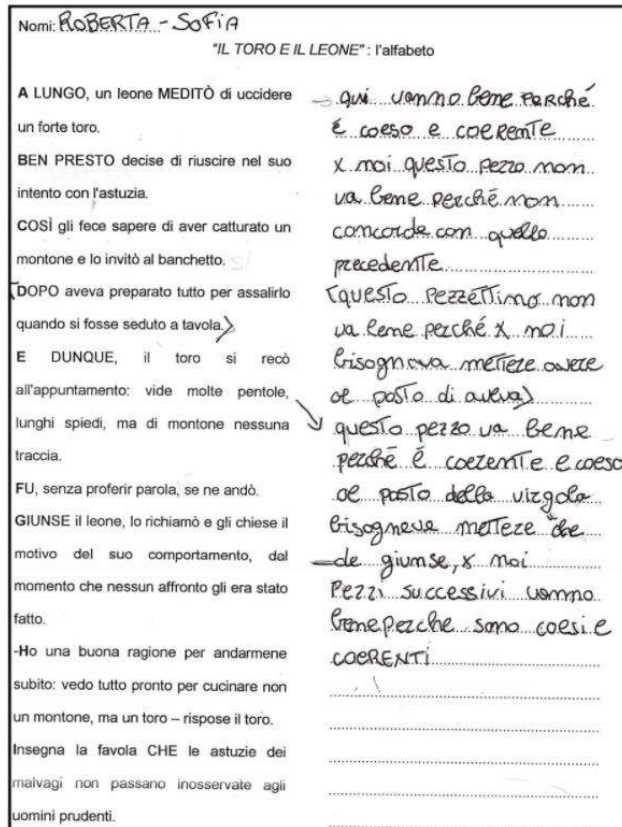 Nomi: ROBERTA - SOFIA
"IL TORO E IL LEONE" : l'alfabeto
A LUNGO, un leone MEDITÒ di uccidere
un forte toro.
BEN PRESTO decise di riuscire nel suo
intento con l'astuzia.
COSÌ gli fece sapere di aver catturato un
montone e lo invitò al banchetto.
(DOPO aveva preparato tutto per assalirlo
quando si fosse seduto a tavola.)
E DUNQUE, il toro si recò
all'appuntamento: vide molte pentole,
lunghi spiedi, ma di montone nessuna
traccia.
FU, senza proferir parola, se ne andò.
GIUNSE il leone, lo richiamò e gli chiese il
motivo del suo comportamento, dal
momento che nessun affronto gli era stato
fatto.
-Ho una buona ragione per andarmene
subito: vedo tutto pronto per cucinare non
un montone, ma un toro – rispose il toro.
Insegna la favola CHE le astuzie dei
malvagi non passano inosservate agli
uomini prudenti.
qui vanno bene perché
è coeso e coerente
x noi questo pezzo non
va bene perché non
concorda con quello
precedente
(questo pezzettino non
va bene perché x noi
bisognava mettere avere
al posto di aveva)
questo pezzo va bene
perché é coerente e coeso
al posto della virgola
bisogneva mettere che
de giunse, x noi
Pezzi successivi vanno
bene perche sono coesi e
COERENTI